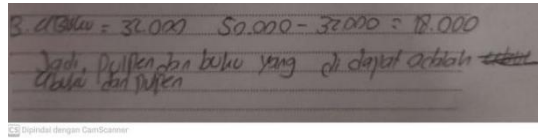 3. 4 Buku = 32.000 50.000 - 32000 = 18.000
Jadi, Pulpen dan buku yang di dapat adalah
4 buku dan Pulpen
CS Dipindai dengan CamScanner